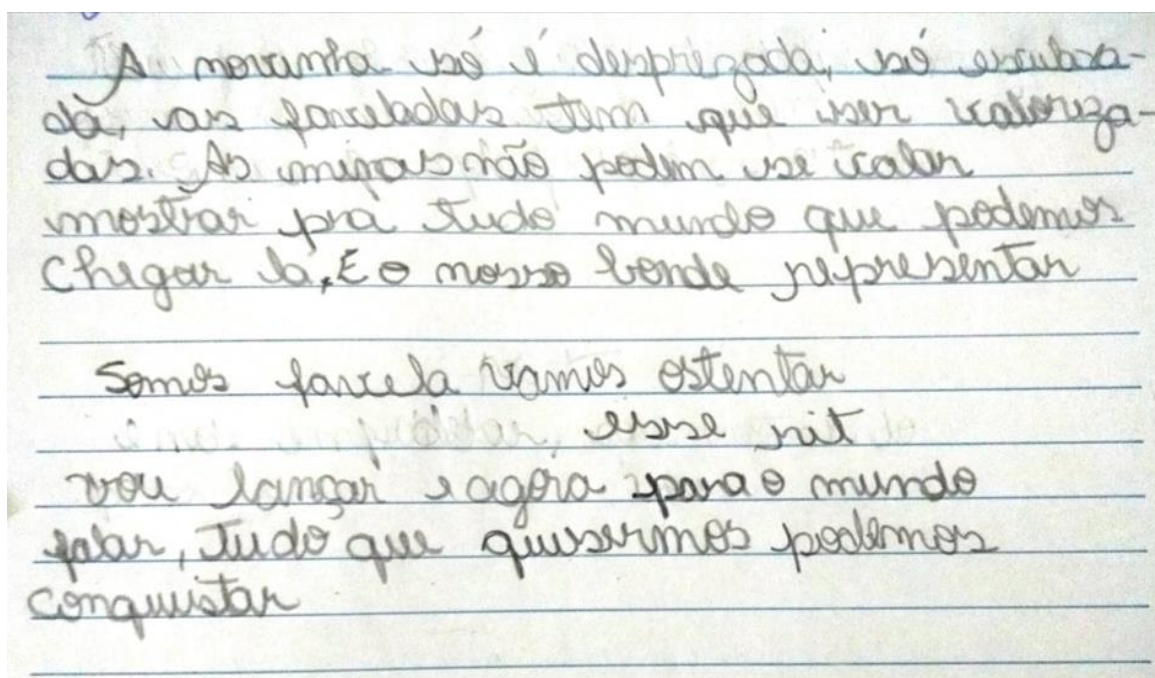 A novinha só é desprezada, só esculaxa-
da, as faveladas tem que ser valoriza-
das. As minas não podem se calar
mostrar pra tudo mundo que podemos
chegar lá, E o nosso bonde representar
Somos favela vamos ostentar
esse hit
vou lançar e agora para o mundo
falar, Tudo que quisermos podemos
conquistar